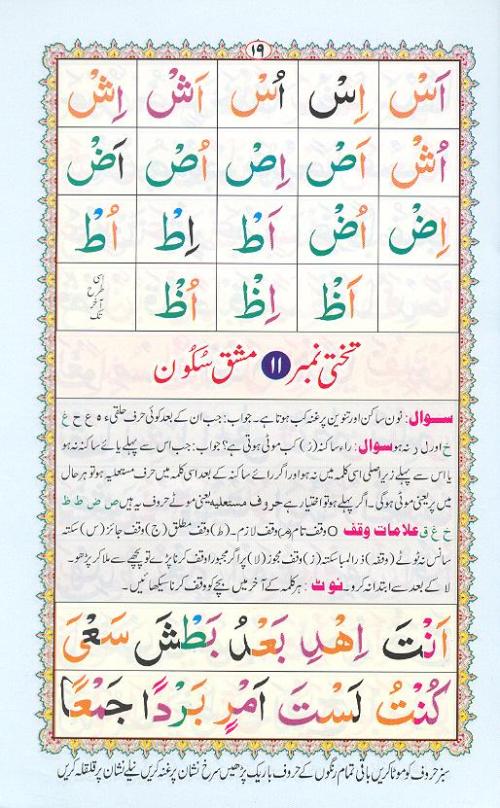 ١٩
اَسْ اِسْ اُسْ اَشْ اِشْ
اُشْ اَصْ اِصْ اُصْ اَضْ
اِضْ اُضْ اَطْ اِطْ اُطْ
اَظْ اِظْ اُظْ اسی طرح آخر تک
تختی نمبر ١١ مشق سُکُون
سوال: نون ساکن اور تنوین پر غنہ کب ہوتا ہے۔ جواب: جب ان کے بعد کوئی حرف حلقی ء ہ ع ح غ
خ اور ل ر نہ ہو سوال: راء ساکنہ (رْ) کب موٹی ہوتی ہے؟ جواب: جب اس سے پہلے یائے ساکنہ نہ ہو
یا اس سے پہلے زیر اصلی اسی کلمہ میں نہ ہو اور اگر رائے ساکنہ کے بعد اسی کلمہ میں حرف مستعلیہ ہو تو ہر حال
میں پر یعنی موٹی ہوگی۔ اگر پہلے ہو تو اختیار ہے حروف مستعلیہ یعنی موٹے حروف یہ ہیں ص ض ط ظ
خ غ ق علامات وقف O وقف تام (م) وقف لازم۔ (ط) وقف مطلق (ج) وقف جائز (س) سکتہ
سانس نہ ٹوٹے (وقفہ) ذرا لمبا سکتہ (ز) وقف مجوز (لا) پر اگر مجبورا وقف کرنا پڑے تو پیچھے سے ملا کر پڑھو۔
لا کے بعد سے ابتدا نہ کرو۔ نوٹ: ہر کلمہ کے آخر میں بچے کو وقف کرنا سیکھائیں۔
اَنْتَ اِهْدِ بَعْدُ بَطْشَ سَعْیَ
کُنْتُ لَسْتَ اَمْرٍ بَرْدًا جَمْعًا
سبز حروف کو موٹا کریں باقی تمام رنگوں کے حروف باریک پڑھیں سرخ نشان پر غنہ کریں نیلے نشان پر قلقلہ کریں